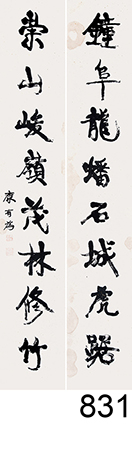 鐘阜龍蟠石城虎踞
崇山峻嶺茂林修竹
康有為
831